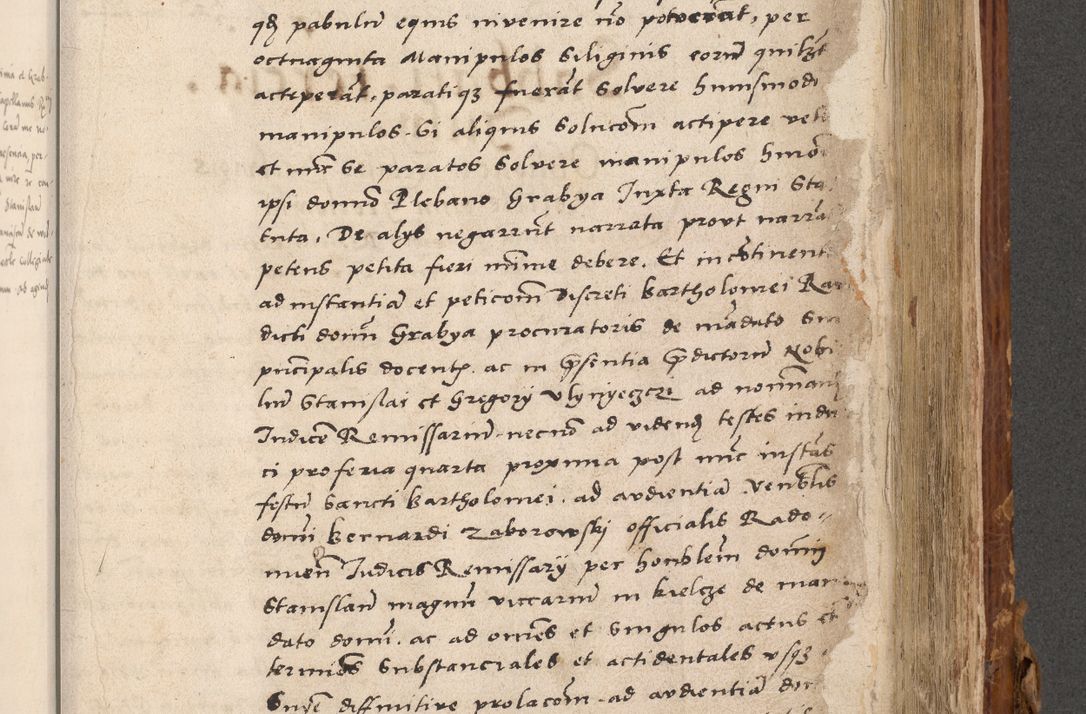 qd pabulum equis invenire no potuerat, per
octuaginta Manipulos Siliginis eorum quilibet
acceperat, paratiqz fuerat Solvere huiusmodi
manipulos. Si aliquis Solucom accipere
et nuc se paratos Solvere manipulos hmoi
ipsi domino Plebano Grabya Iuxta Regni Sta
tuta, De alys negarunt narrata prout narra
petens petita fieri minime debere. Et incotinenti
ad instantia et peticom Discreti Bartholomei
dicti domi Grabya procuratoris de madato
principalis docents. ac in psentia pdictoru Nobi
liu Stanislai et Gregorij Ulynyeczczi ad
Iudice Remissariu. necno ad vidend testes indu
ci pro feria quarta proxima post nuc instas
festu Sancti Bartholomei. ad audientia Venblis
domi Bernardi Zaborowskj officialis Rado-
Iudicis Remissarij per honblem domin
Stanislau magnu viccariu in kielcze de man
dato domi. ac ad omes et Singulos actus et
termios Substanciales et accidentales usqz
diffinitive prolacom. ad audientia